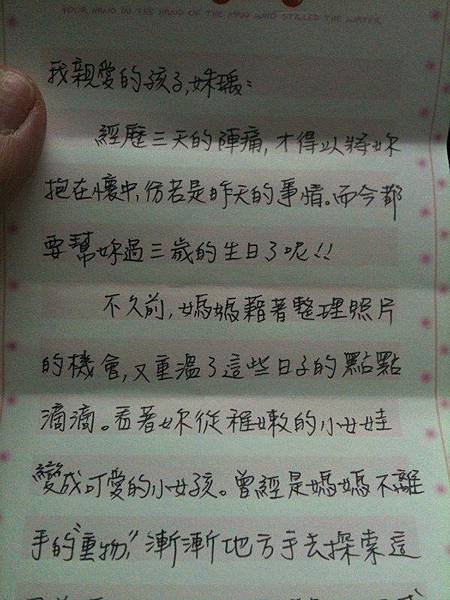 YOUR HAND IN THE HAND OF THE MAN WHO STILLED THE WATER,
我親愛的孩子,姝瑀:
經歷三天的陣痛,才得以將妳
抱在懷中,彷若是昨天的事情。而今都
要幫妳過三歲的生日了呢!!
不久前,媽媽藉著整理照片
的機會,又重溫了這些日子的點點
滴滴。看著妳從稚嫩的小女娃
變成可愛的小女孩。曾經是媽媽不離
手的"重物,"漸漸地放手去探索這